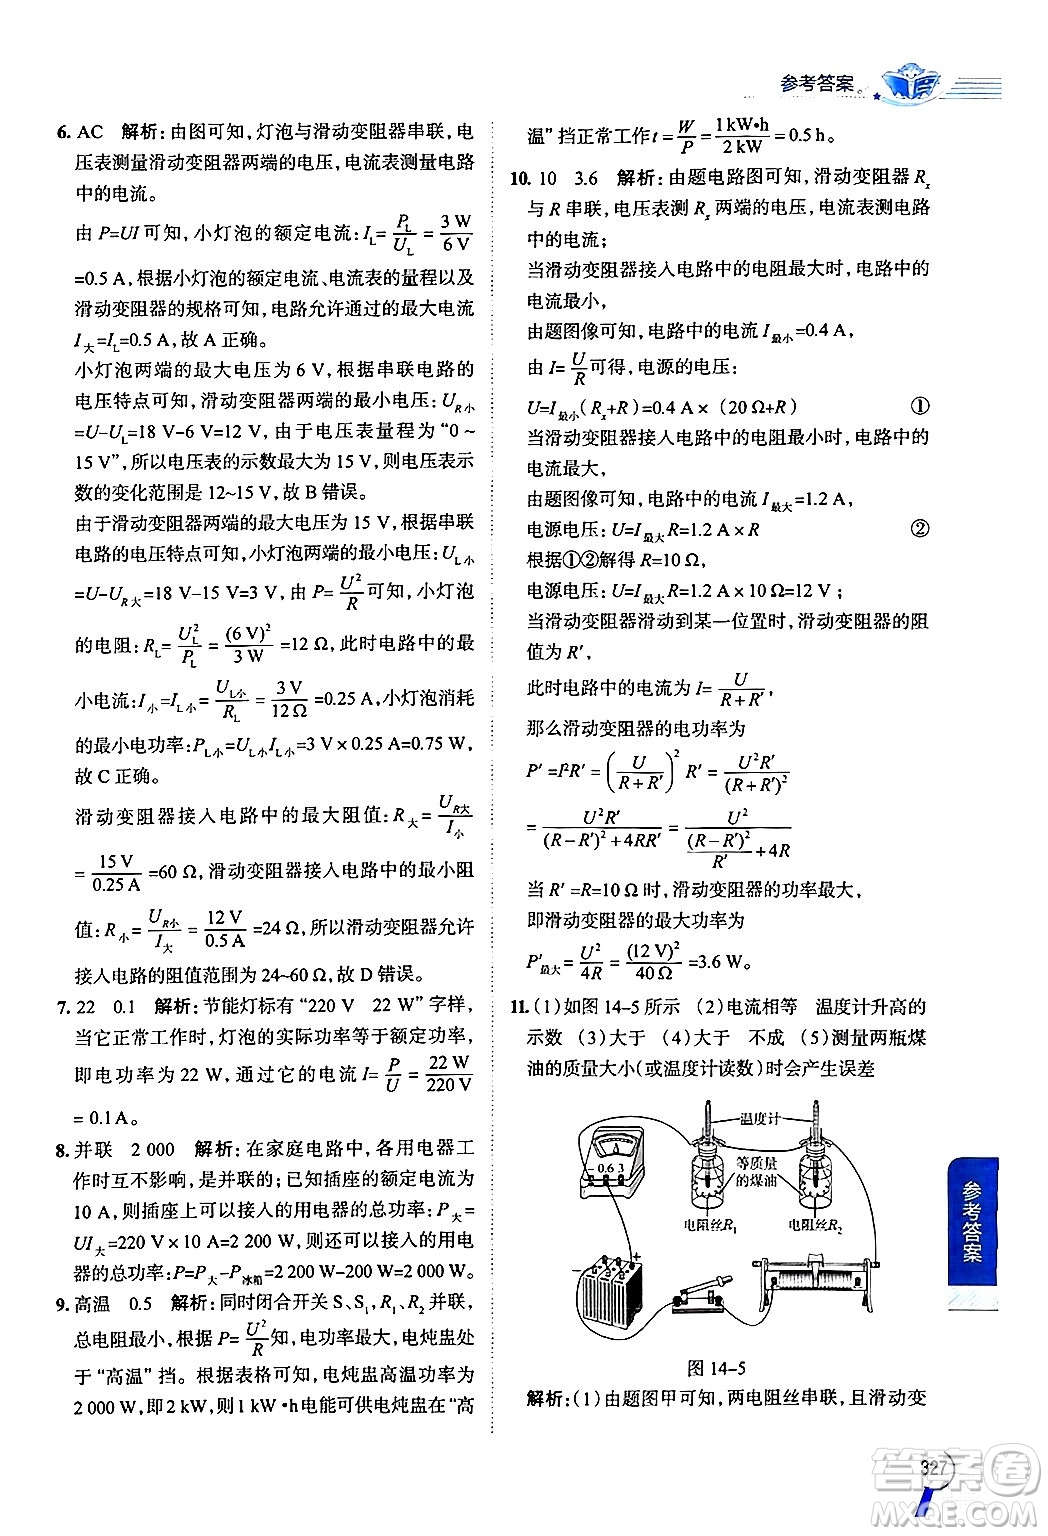 参考答案
6. AC 解析:由图可知,灯泡与滑动变阻器串联,电
压表测量滑动变阻器两端的电压,电流表测量电路
中的电流。
由 P=UI 可知,小灯泡的额定电流:I_L=P_L/U_L=3 W/6 V
=0.5 A,根据小灯泡的额定电流、电流表的量程以及
滑动变阻器的规格可知,电路允许通过的最大电流
I_大=I_L=0.5 A,故 A 正确。
小灯泡两端的最大电压为 6 V,根据串联电路的
电压特点可知,滑动变阻器两端的最小电压:U_R小
=U-U_L=18 V-6 V=12 V,由于电压表量程为“0~
15 V”,所以电压表的示数最大为 15 V,则电压表示
数的变化范围是 12~15 V,故 B 错误。
由于滑动变阻器两端的最大电压为 15 V,根据串联
电路的电压特点可知,小灯泡两端的最小电压:U_L小
=U-U_R大=18 V-15 V=3 V,由 P=U²/R 可知,小灯泡
的电阻:R_L=U_L²/P_L=(6 V)²/3 W=12 Ω,此时电路中的最
小电流:I_小=I_L小=U_L小/R_L=3 V/12 Ω=0.25 A,小灯泡消耗
的最小电功率:P_L小=U_L小I_L小=3 V×0.25 A=0.75 W,
故 C 正确。
滑动变阻器接入电路中的最大阻值:R_大=U_R大/I_小
=15 V/0.25 A=60 Ω,滑动变阻器接入电路中的最小阻
值:R_小=U_R小/I_大=12 V/0.5 A=24 Ω,故滑动变阻器允许
接入电路的阻值范围是 24~60 Ω,故 D 错误。
7. 22 0.1 解析:节能灯标有“220 V 22 W”字样,
当它正常工作时,灯泡的实际功率等于额定功率,
即电功率为 22 W,通过它的电流 I=P/U=22 W/220 V
= 0.1 A。
8. 并联 2 000 解析:在家庭电路中,各用电器工
作时互不影响,是并联的;已知插座允许的最大电流为
10 A,则这个插座上可以接入的用电器的总功率:P_大=
UI_大=220 V×10 A=2 200 W,则还可以接入的用电
器的总功率:P=P_大-P_冰箱=2 200 W-200 W=2 000 W。
9. 高温 0.5 解析:同时闭合开关 S、S₁,R₁、R₂ 并联,
总电阻最小,根据 P=U²/R知,电功率最大,电炖盅处
于“高温”挡。根据表格可知,电炖盅高温功率为
2 000 W,即2 kW,则1 kW·h电能可供电炖盅在“高
温”挡正常工作 t=W/P=1 kW·h/2 kW=0.5 h。
10. 10 3.6 解析:由题电路图可知,滑动变阻器 Rₓ
与 R 串联,电压表测 Rₓ 两端的电压,电流表测电路
中的电流;
当滑动变阻器接入电路中的电阻最大时,电路中的
电流最小,
由题图像可知,电路中的电流 I_最小=0.4 A,
由 I=U/R可得,电源的电压:
U=I_最小(Rₓ+R)=0.4 A×(20 Ω+R) ①
当滑动变阻器接入电路中的电阻最小时,电路中的
电流最大,
由题图像可知,电路中的电流 I_最大=1.2 A,
电源电压:U=I_最大R=1.2 A×R ②
根据①②解得 R=10 Ω,
电源电压:U=I_最大R=1.2 A×10 Ω=12 V;
当滑动变阻器滑动到某一位置时,滑动变阻器的阻
值为 R′,
此时电路中的电流为 I=U/(R+R′),
那么滑动变阻器的电功率为
P′=I²R′=(U/(R+R′))² R′=U²R′/(R+R′)²
=U²R′/((R-R′)²+4RR′)=U²/((R-R′)²/R′+4R)
当 R′=R=10 Ω 时,滑动变阻器的功率最大,
即滑动变阻器的最大功率为
P′_最大=U²/4R=(12 V)²/40 Ω=3.6 W。
11. (1)如图 14-5 所示 (2)电流相等 温度计升高的
示数 (3)大于 (4)大于 不成 (5)测量两瓶煤
油的质量大小(或温度计读数)时会产生误差
温度计
0.6 3
等质量
的煤油
电阻丝R₁
电阻丝 R₂
− +
图 14-5
解析:(1)由题图甲可知,两电阻丝串联,且滑动变
参考答案
327
答案圈
MXQE.COM